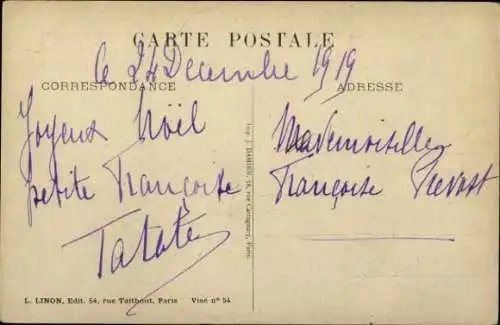 CARTE POSTALE
le 24 Decembre 1919
CORRESPONDANCE
Joyeux Noël
petite Françoise
Tatate
ADRESSE
Mademoiselle
Françoise Prevost
Imp. J. DAMIEN, 14, rue Cassagnary, Paris
L. LINON, Edit. 54, rue Taitbout, Paris Visé n° 54